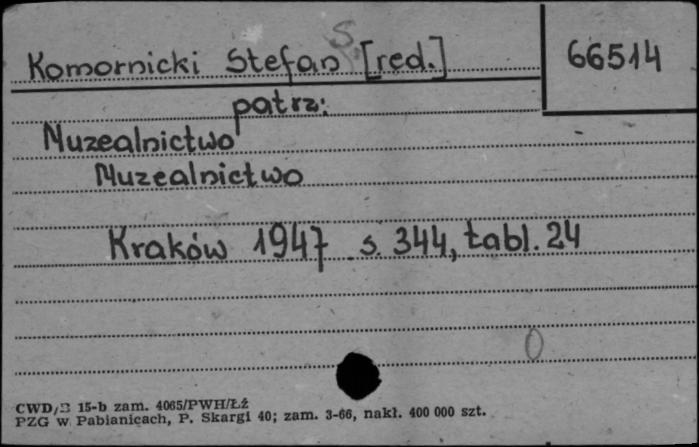 Komornicki Stefan S. [red.]
66514
patrz:
Muzealnictwo
Muzealnictwo
Kraków 1947 s. 344, tabl. 24
0
CWD/B 15-b zam. 4065/PWH/Łź
PZG w Pabianicach, P. Skargi 40; zam. 3-66, nakł. 400 000 szt.